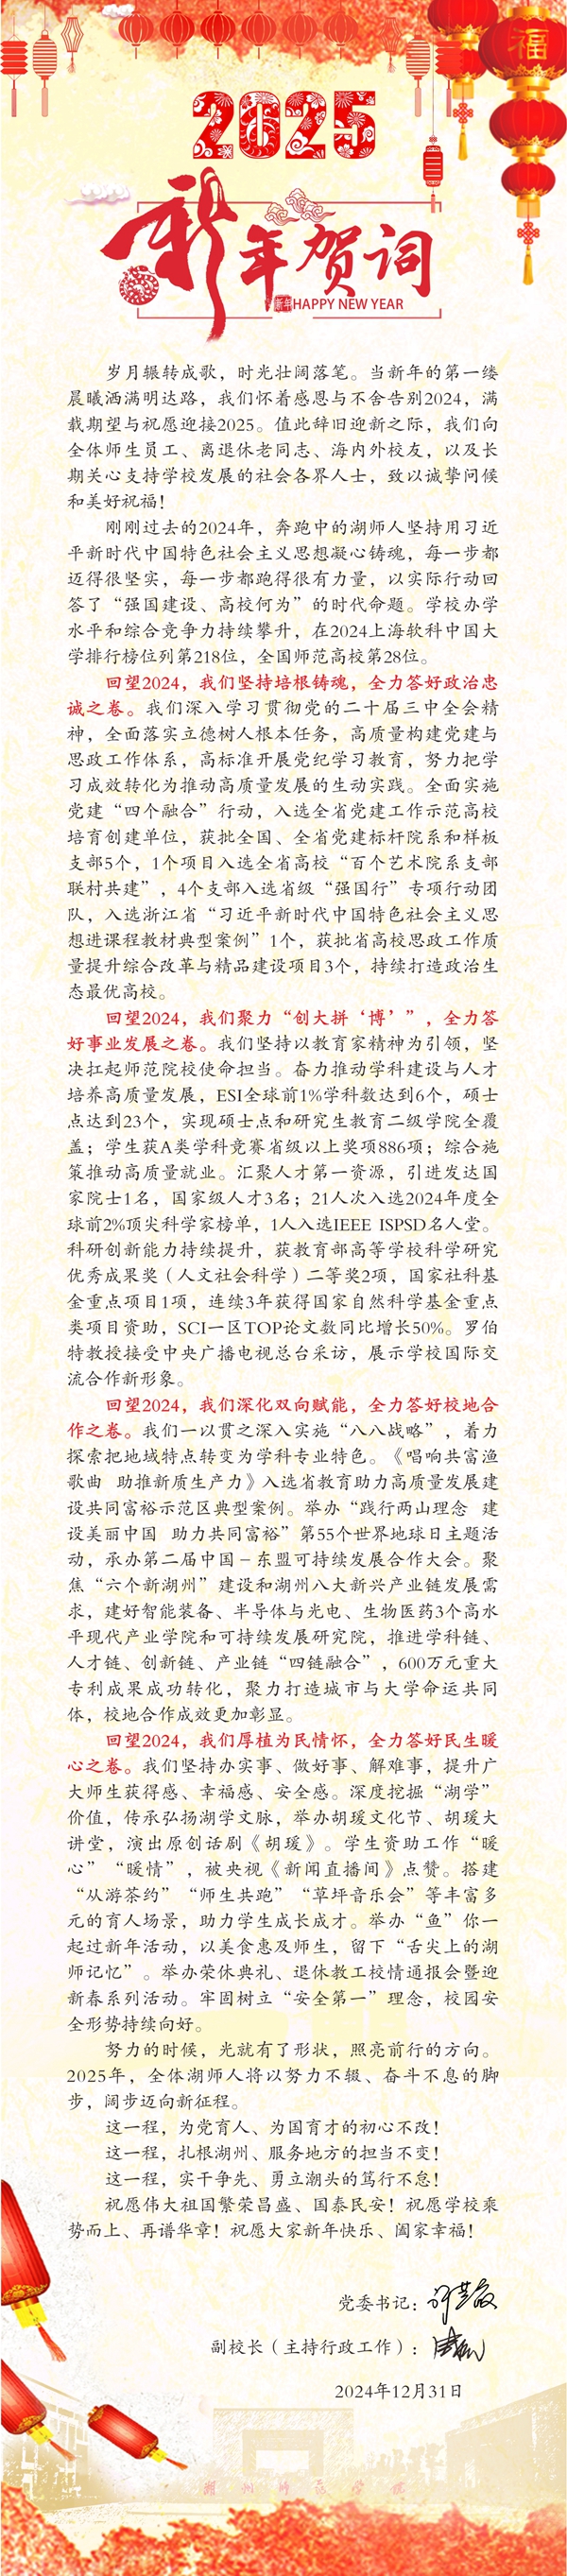 福
2025
新年贺词
HAPPY NEW YEAR
岁月辗转成歌，时光壮阔落笔。当新年的第一缕
晨曦洒满明达路，我们怀着感恩与不舍告别2024，满
载期望与祝愿迎接2025。值此辞旧迎新之际，我们向
全体师生员工、离退休老同志、海内外校友，以及长
期关心支持学校发展的社会各界人士，致以诚挚问候
和美好祝福！
刚刚过去的2024年，奔跑中的湖师人坚持用习近
平新时代中国特色社会主义思想凝心铸魂，每一步都
迈得很坚实，每一步都跑得很有力量，以实际行动回
答了“强国建设、高校何为”的时代命题。学校办学
水平和综合竞争力持续攀升，在2024上海软科中国大
学排行榜位列第218位，全国师范高校第28位。
回望2024，我们坚持培根铸魂，全力答好政治忠
诚之卷。我们深入学习贯彻党的二十届三中全会精
神，全面落实立德树人根本任务，高质量构建党建与
思政工作体系，高标准开展党纪学习教育，努力把学
习成效转化为推动高质量发展的生动实践。全面实施
党建“四个融合”行动，入选全省党建工作示范高校
培育创建单位，获批全国、全省党建标杆院系和样板
支部5个，1个项目入选全省高校“百个艺术院系支部
联村共建”，4个支部入选省级“强国行”专项行动团
队，入选浙江省“习近平新时代中国特色社会主义思
想进课程教材典型案例”1个，获批省高校思政工作质
量提升综合改革与精品建设项目3个，持续打造政治生
态最优高校。
回望2024，我们聚力“创大拼‘博’”，全力答
好事业发展之卷。我们坚持以教育家精神为引领，坚
决扛起师范院校使命担当。奋力推动学科建设与人才
培养高质量发展，ESI全球前1%学科数达到6个，硕士
点达到23个，实现硕士点和研究生教育二级学院全覆
盖；学生获A类学科竞赛省级以上奖项886项；综合施
策推动高质量就业。汇聚人才第一资源，引进发达国
家院士1名，国家级人才3名；21人次入选2024年度全
球前2%顶尖科学家榜单，1人入选IEEE ISPSD名人堂。
科研创新能力持续提升，获教育部高等学校科学研究
优秀成果奖（人文社会科学）二等奖2项，国家社科基
金重点项目1项，连续3年获得国家自然科学基金重点
类项目资助，SCI一区TOP论文数同比增长50%。罗伯
特教授接受中央广播电视总台采访，展示学校国际交
流合作新形象。
回望2024，我们深化双向赋能，全力答好校地合
作之卷。我们一以贯之深入实施“八八战略”，着力
探索把地域特点转变为学科专业特色。《唱响共富渔
歌曲 助推新质生产力》入选省教育助力高质量发展建
设共同富裕示范区典型案例。举办“践行两山理念 建
设美丽中国 助力共同富裕”第55个世界地球日主题活
动，承办第二届中国－东盟可持续发展合作大会。聚
焦“六个新湖州”建设和湖州八大新兴产业链发展需
求，建好智能装备、半导体与光电、生物医药3个高水
平现代产业学院和可持续发展研究院，推进学科链、
人才链、创新链、产业链“四链融合”，600万元重大
专利成果成功转化，聚力打造城市与大学命运共同
体，校地合作成效更加彰显。
回望2024，我们厚植为民情怀，全力答好民生暖
心之卷。我们坚持办实事、做好事、解难事，提升广
大师生获得感、幸福感、安全感。深度挖掘“湖学”
价值，传承弘扬湖学文脉，举办胡瑗文化节、胡瑗大
讲堂，演出原创话剧《胡瑗》。学生资助工作“暖
心”“暖情”，被央视《新闻直播间》点赞。搭建
“从游茶约”“师生共跑”“草坪音乐会”等丰富多
元的育人场景，助力学生成长成才。举办“鱼”你一
起过新年活动，以美食惠及师生，留下“舌尖上的湖
师记忆”。举办荣休典礼、退休教工校情通报会暨迎
新春系列活动。牢固树立“安全第一”理念，校园安
全形势持续向好。
努力的时候，光就有了形状，照亮前行的方向。
2025年，全体湖师人将以努力不辍、奋斗不息的脚
步，阔步迈向新征程。
这一程，为党育人、为国育才的初心不改！
这一程，扎根湖州、服务地方的担当不变！
这一程，实干争先、勇立潮头的笃行不怠！
祝愿伟大祖国繁荣昌盛、国泰民安！祝愿学校乘
势而上、再谱华章！祝愿大家新年快乐、阖家幸福！
党委书记：
副校长（主持行政工作）：
2024年12月31日
湖州师范学院